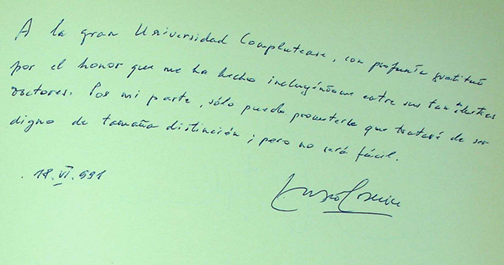 A la gran Universidad Complutense, con profunda gratitud
por el honor que me ha hecho incluyéndome entre sus tan ilustres
doctores. Por mi parte, sólo puedo prometerle que trataré de ser
digno de tamaña distinción; pero no será fácil.
18. VI. 991